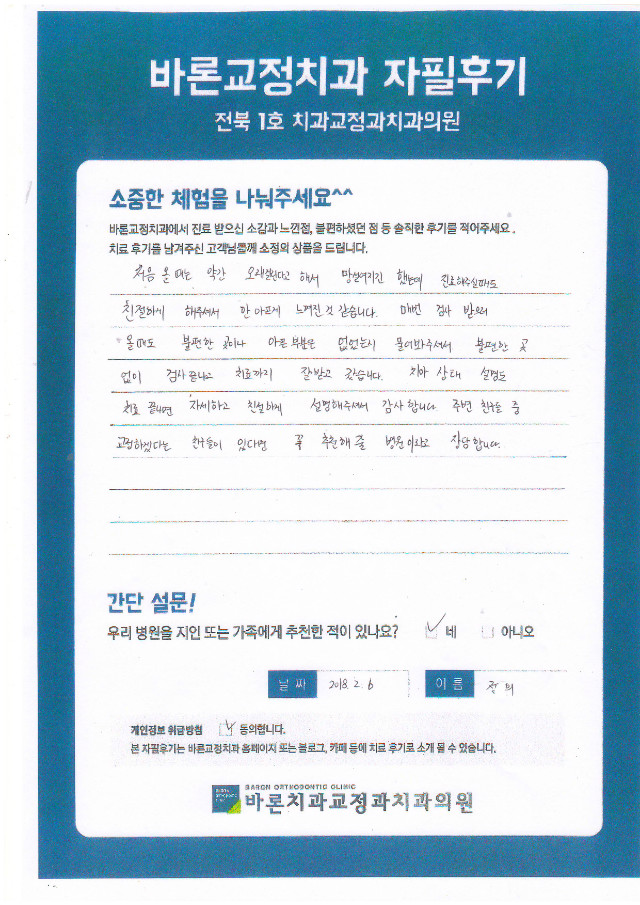 바론교정치과 자필후기
전북 1호 치과교정과치과의원
소중한 체험을 나눠주세요^^
바론교정치과에서 진료 받으신 소감과 느낀점, 불편하셨던 점 등 솔직한 후기를 적어주세요.
치료 후기를 남겨주신 고객님들께 소정의 상품을 드립니다.
처음 올 때는 약간 오래걸린다고 해서 망설여지긴 했는데 진료해주실때도
친절하게 해주셔서 한 아프게 느껴진 것 같습니다. 매번 검사 받으러
올때도 불편한 곳이나 아픈 부분은 없었는지 물어봐주셔서 불편한 곳
없이 검사 끝나고 치료까지 잘받고 갔습니다. 치아 상태 설명도
치료 끝나면 자세하고 친절하게 설명해주셔서 감사합니다. 주변 친구들 중
교정하겠다는 친구들이 있다면 꼭 추천해 줄 병원이라고 장담합니다.
간단 설문!
우리 병원을 지인 또는 가족에게 추천한 적이 있나요? 네 아니오
날 짜 2018. 2. 6 이 름
개인정보 취급방침 동의합니다.
본 자필후기는 바론교정치과 홈페이지 또는 블로그, 카페 등에 치료 후기로 소개 될 수 있습니다.
BARON ORTHODONTIC CLINIC
바론치과교정과치과의원